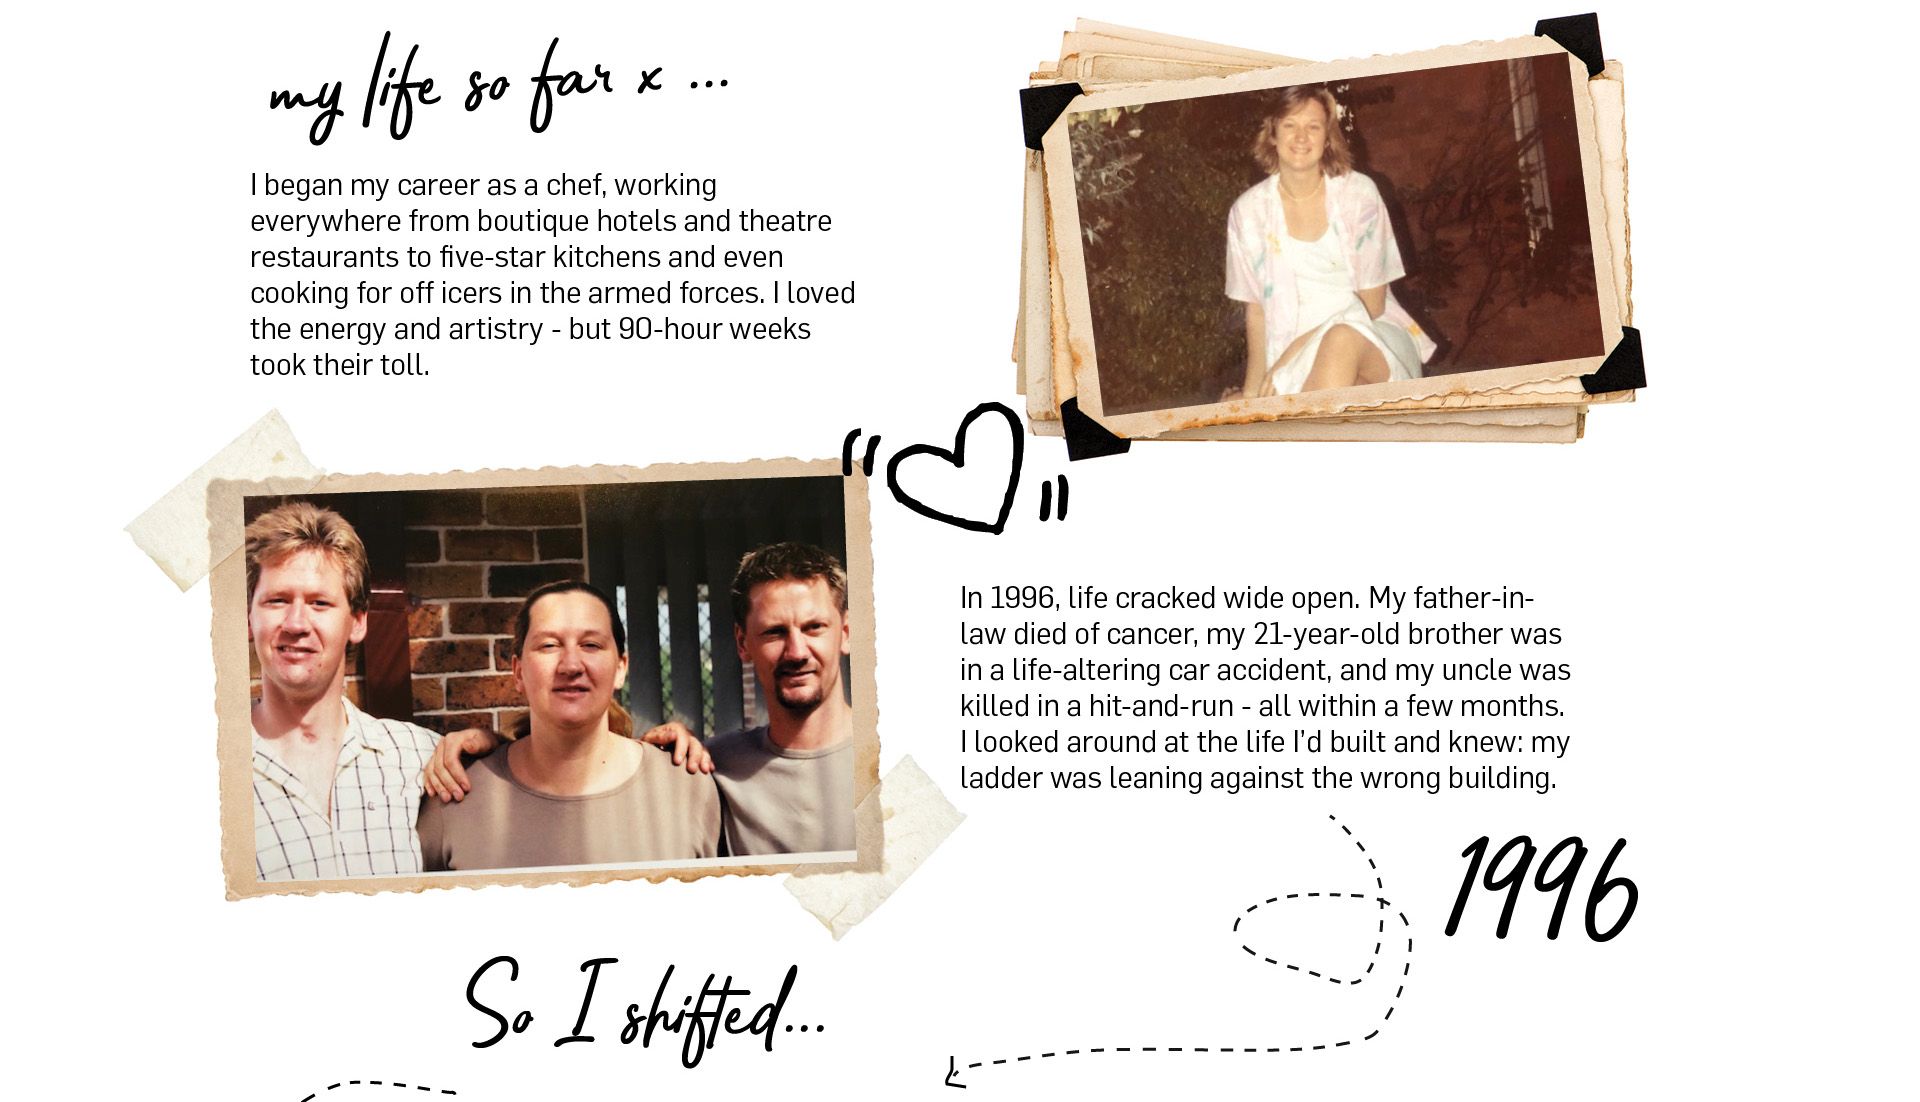 my life so far x ...
I began my career as a chef, working
everywhere from boutique hotels and theatre
restaurants to five-star kitchens and even
cooking for off icers in the armed forces. I loved
the energy and artistry - but 90-hour weeks
took their toll.
In 1996, life cracked wide open. My father-in-
law died of cancer, my 21-year-old brother was
in a life-altering car accident, and my uncle was
killed in a hit-and-run - all within a few months.
I looked around at the life I’d built and knew: my
ladder was leaning against the wrong building.
1996
So I shifted...